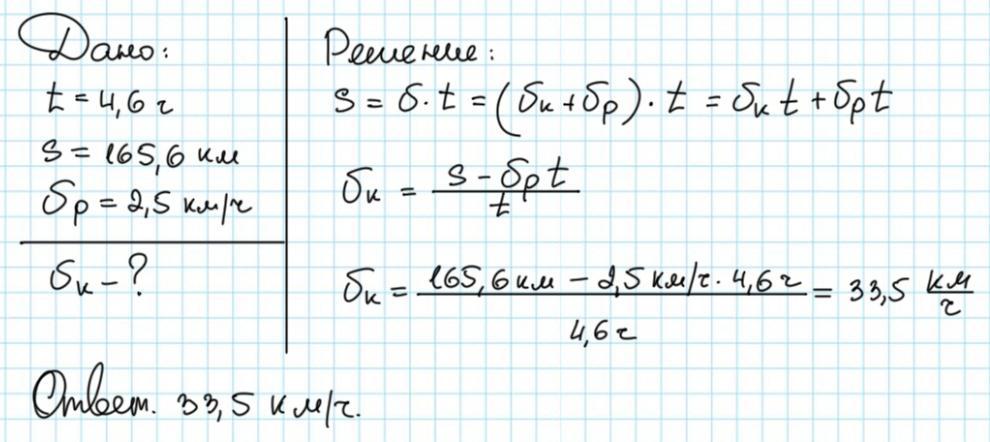 Дано:
t = 4,6 ч
s = 165,6 км
υр = 2,5 км/ч
υк – ?
Решение:
s = υ · t = (υк + υр) · t = υк t + υр t
υк = (s – υр t) / t
υк = (165,6 км – 2,5 км/ч · 4,6 ч) / 4,6 ч = 33,5 км/ч
Ответ. 33,5 км/ч.